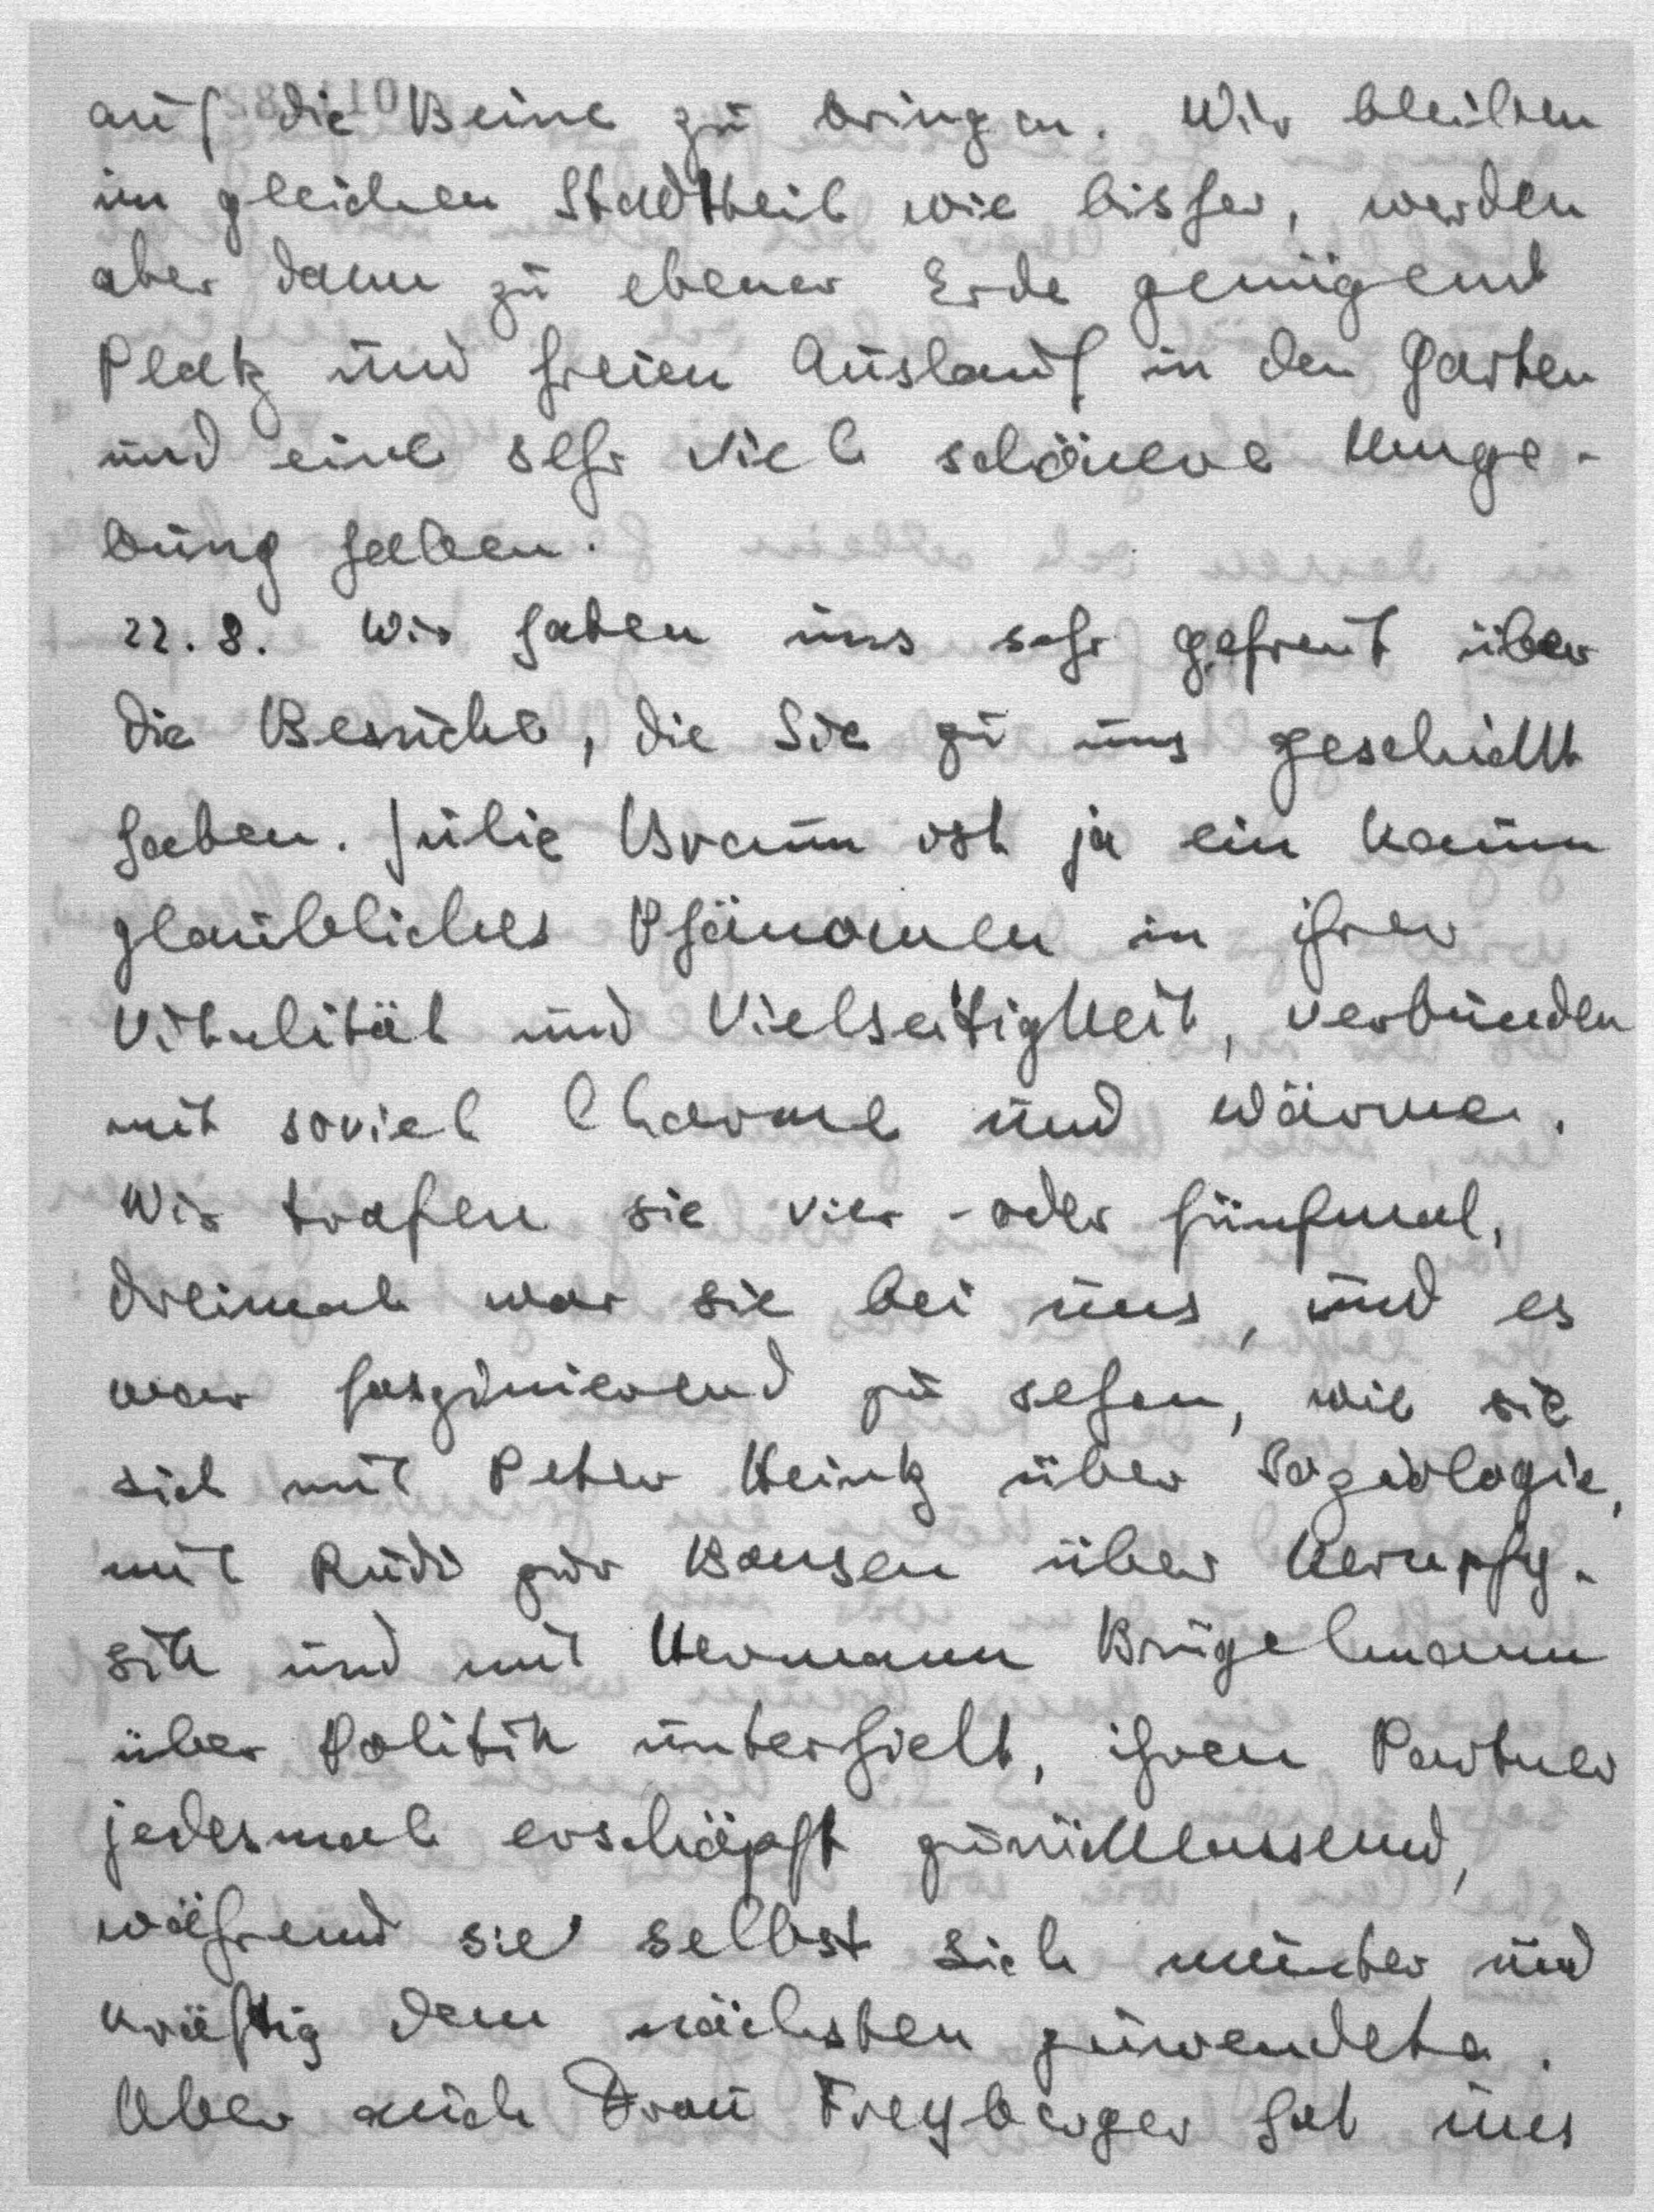 auf die Beine zu bringen. Wir bleiben
im gleichen Stadtteil wie bisher, werden
aber dann zu ebener Erde genügend
Platz und freien Auslauf in den Garten
und eine sehr viel schönere Umge-
bung haben.
22.8. Wir haben uns sehr gefreut über
die Besuche, die Sie zu uns geschickt
haben. Julie Braun ist ja ein kaum
glaubliches Phänomen in ihrer
Vitalität und Vielseitigkeit, verbunden
mit soviel Charme und Wärme.
Wir trafen sie vier- oder fünfmal,
dreimal war sie bei uns, und es
war faszinierend zu sehen, wie sie
sich mit Peter Heintz über Soziologie,
mit Rudi zur Bonsen über Kernphy-
sik und mit Hermann Brügelmann
über Politik unterhielt, ihren Partner
jedesmal erschöpft zurücklassend,
während sie selbst sich munter und
kräftig dem nächsten zuwendete.
Aber auch Frau Freyberger hat uns